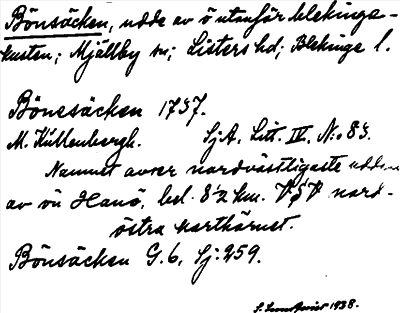 Bönsäcken, udde av ö utanför blekinge-
kusten; Mjällby sn; Listers hd; Blekinge l.
Bönesäcken 1737.
M. Kullenbergh. SjA. Litt. IV, No 83.
Namnet avser nordvästligaste udden
av ön Hanö, bel. 8½ km. VSV nord-
östra karthörnet.
Bönsäcken G.6, Sj: 259.
1938.